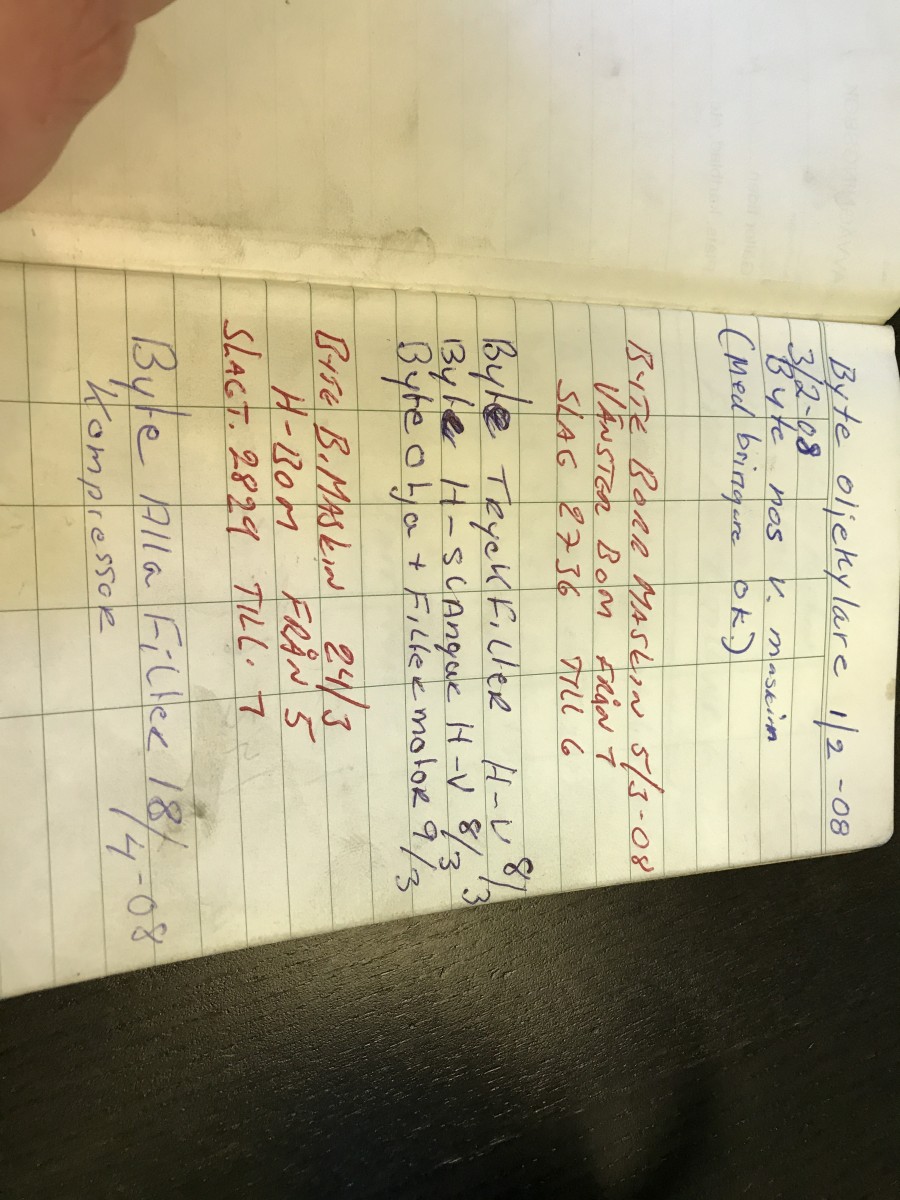 Byte oljekylare 1/2-08
3/2-08
Byte nos v. maskin
(Med bringare OK)
BYTE BORR MASKIN 5/3-08
VÄNSTER BOM FRÅN 7
SLAG 2736 TILL 6
Byte TryckFilter H-V 8/3
Byte H-slangar H-V 8/3
Byte olja + Filter motor 9/3
BYTE B.MASKIN 24/3
H-BOM FRÅN 5
SLAGT. 2829 TILL. 7
Byte Alla Filter 18/4-08
Kompressor